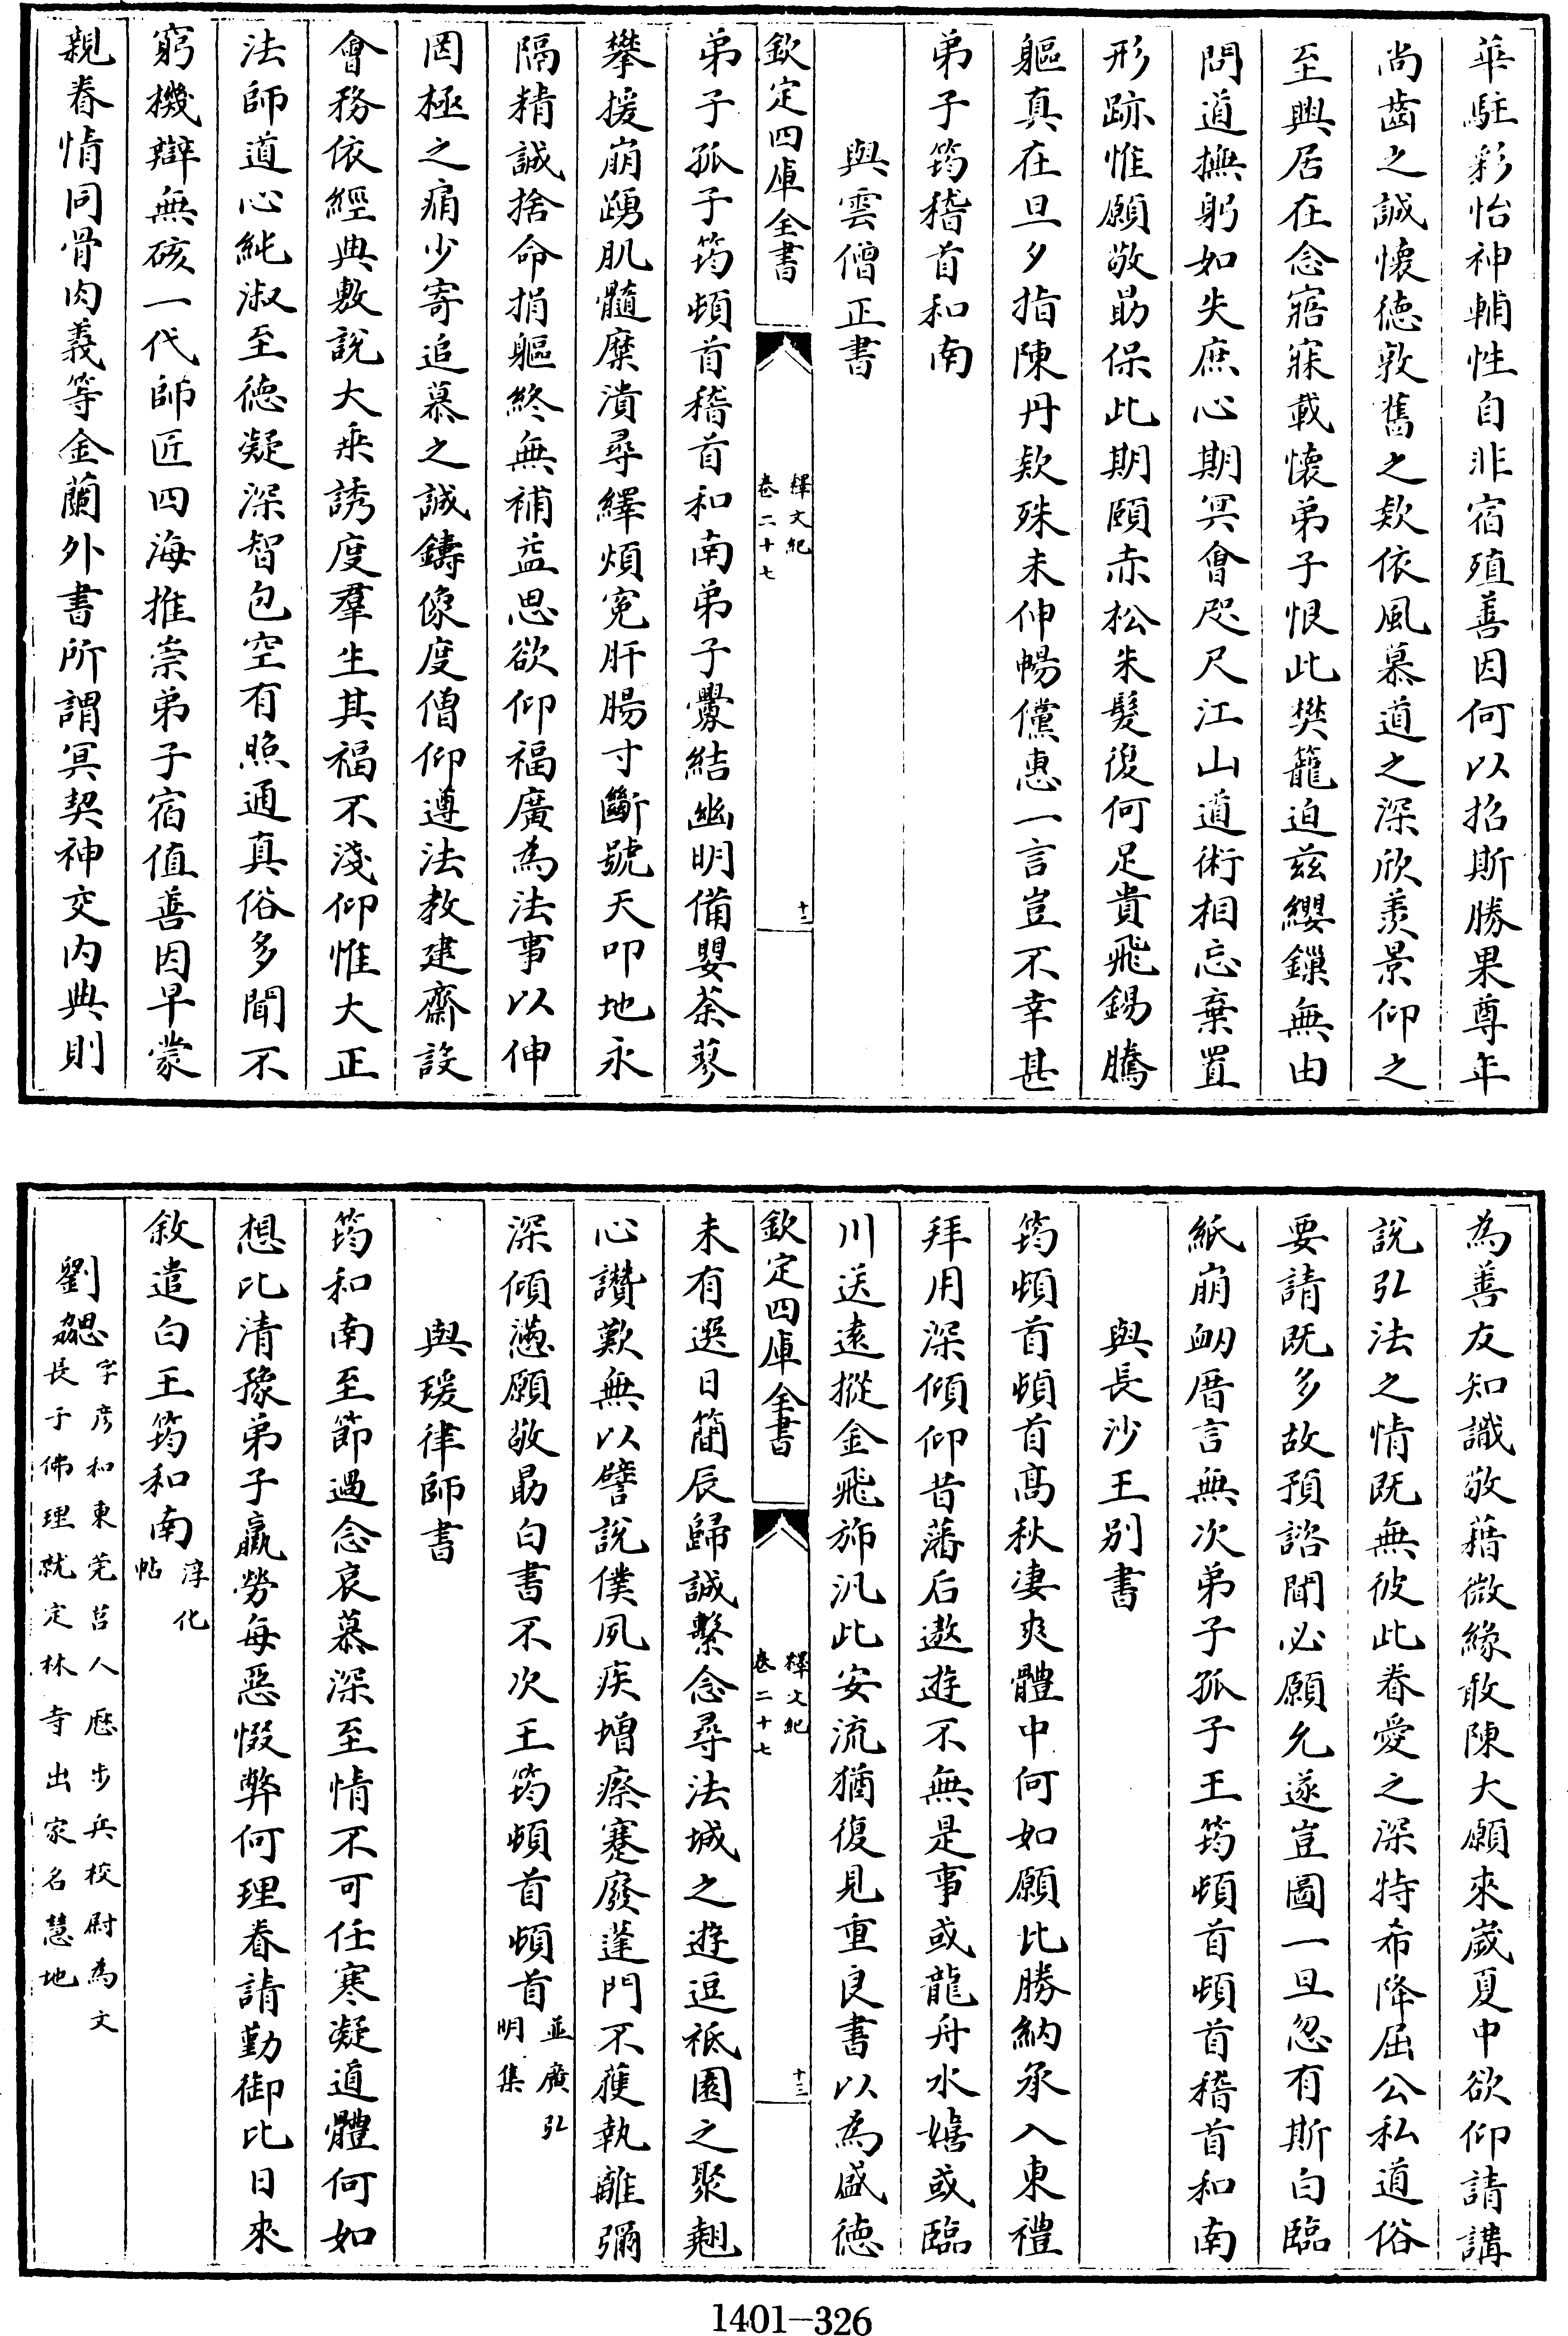 華駐彩怡神輔性自非宿殖善因何以招斯勝果尊年
尚齒之誠懷徳敦舊之欵依風慕道之深欣羨景仰之
至興居在念寤寐載懷弟子恨此樊籠迫兹纓鏁無由
問道撫躬如失庶心期冥會咫尺江山道術相忘棄置
形跡惟願敬勗保此期頤赤松朱髮復何足貴飛錫騰
軀真在旦夕指陳丹欵殊未伸暢儻惠一言豈不幸甚
弟子筠稽首和南
與雲僧正書
欽定四庫全書
釋文紀
卷二十七
十二
弟子孤子筠頓首稽首和南弟子釁結幽明備嬰荼蓼
攀援崩踴肌髓糜潰尋繹煩寃肝腸寸斷號天叩地永
隔精誠捨命捐軀終無補益思欲仰福廣為法事以伸
罔極之痛少寄追慕之誠鑄像度僧仰遵法教建齋設
會務依經典敷說大乗誘度羣生其福不淺仰惟大正
法師道心純淑至徳凝深智包空有照通真俗多聞不
窮機辯無硋一代師匠四海推崇弟子宿值善因早蒙
親眷情同骨肉義等金蘭外書所謂冥契神交内典則
為善友知識敬藉微緣敢陳大願來嵗夏中欲仰請講
說弘法之情既無彼此眷愛之深特希降屈公私道俗
要請既多故預諮聞必願允遂豈圖一旦忽有斯白臨
紙崩衂厝言無次弟子孤子王筠頓首頓首稽首和南
與長沙王别書
筠頓首頓首髙秋凄爽體中何如願比勝納承入東禮
拜用深傾仰昔藩后遨遊不無是事或龍舟水嬉或臨
川送逺摐金飛斾汎此安流猶復見重良書以為盛徳
欽定四庫全書
釋文紀
卷二十七
十三
未有選日簡辰歸誠繫念尋法城之遊逗祗園之聚翹
心讚歎無以譬說僕夙疾增瘵蹇廢蓬門不獲執離彌
深傾懣願敬勗白書不次王筠頓首頓首並廣弘
明集
與瑗律師書
筠和南至節過念哀慕深至情不可任寒凝道體何如
想比清豫弟子羸勞每惡惙弊何理眷請勤御比日來
敘遣白王筠和南淳化
帖
劉勰字彦和東莞莒人歴步兵校尉為文
長于佛理就定林寺出家名慧地
1401-326